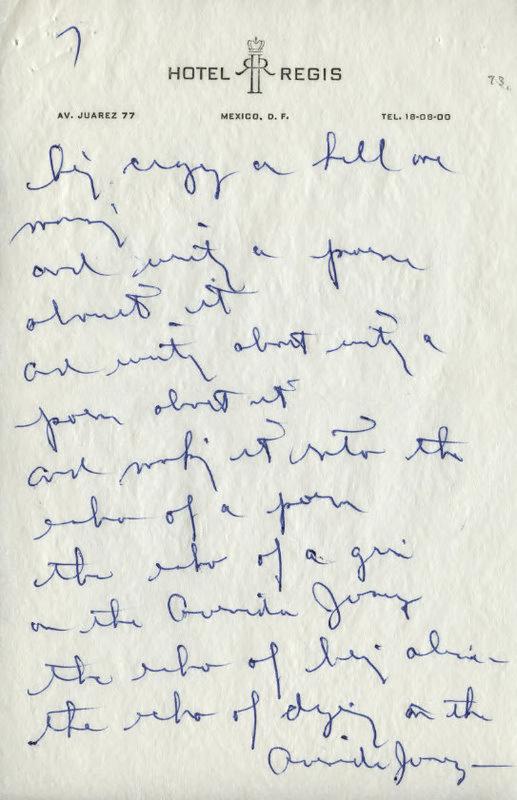 7
HOTEL REGIS
73.
AV. JUAREZ 77 MEXICO, D. F. TEL. 18-08-00
being crazy as hell one
morning
and writing a poem
about it
and writing about writing a
poem about it
and making it into the
echo of a poem
the echo of a grin
on the Avenida Juarez
the echo of being alive —
the echo of dying on the
Avenida Juarez —